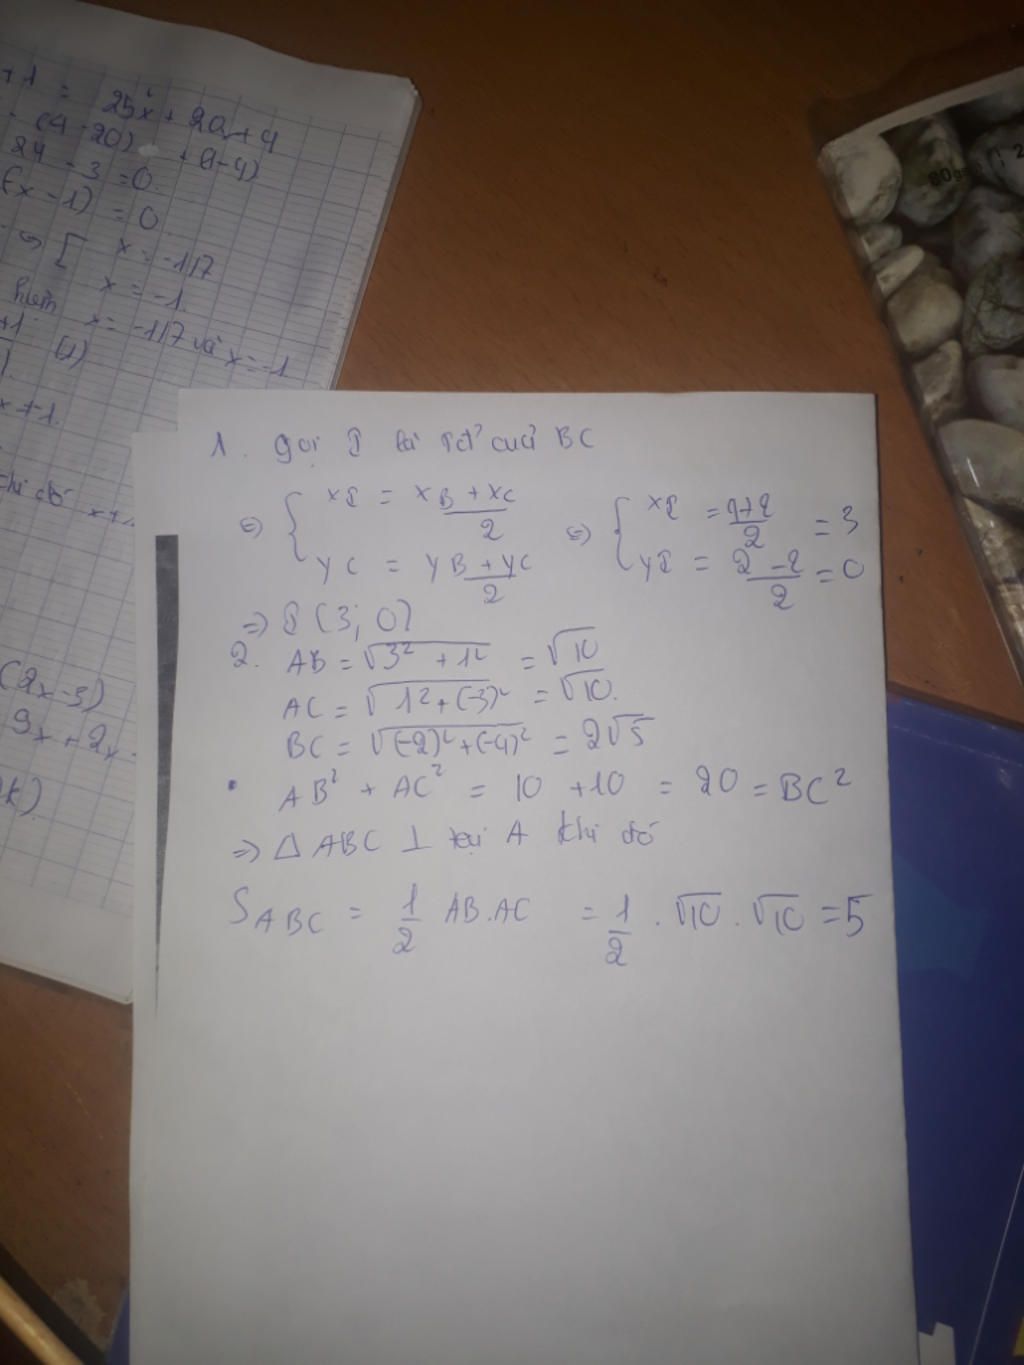 +1 = 25x² + 20x + 4
(4 - 20) + (1 - 4)
24 - 3 = 0
(x - 1) = 0
x = -1/7
x = -1.
x = -1/7 và x = -1
+1 (1)
x + 1.
(2x - 3)
9x + 2x
80gs
2
1. gọi I là tđ² của BC
⇔ { xI = xB + xC / 2 ⇔ { xI = 4+2 / 2 = 3
yC = yB + yC / 2 yI = 2 - 2 / 2 = 0
⇒ I (3; 0)
2. AB = √3² + 1² = √10
AC = √1² + (-3)² = √10.
BC = √(-2)² + (-4)² = 2√5
• AB² + AC² = 10 + 10 = 20 = BC²
⇒ △ ABC ⊥ tại A khi đó
S ABC = 1/2 AB.AC = 1/2 . √10 . √10 = 5